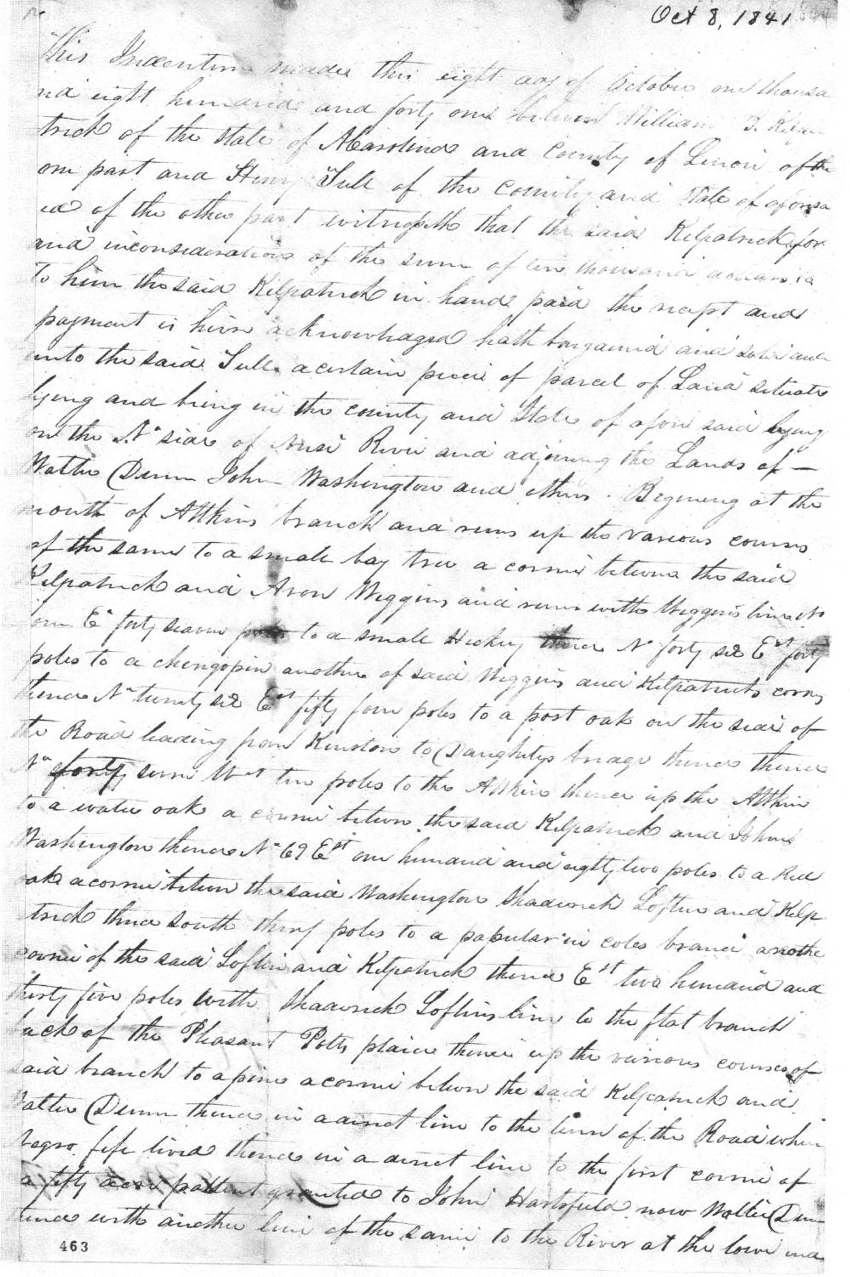 Oct 8, 1841
This Indenture made this eight day of October one thousa
nd eight hundred and forty one between William B. Kilpa
trick of the State of NCarolina and County of Lenoir of the
one part and Henry Tull of the County and State of aforesa
id of the other part witnesseth that the said Kilpatrick for
and inconsideration of the sum of ten thousand dollars
To him the said Kilpatrick in hand paid the recept and
payment is here acknowledged hath bargained and sold
unto the said Tull a certain piece of parcel of Land situate
lying and being in the county and State of afore said lying
on the N side of Nuse River and adjoining the Lands of —
Walter Dunn John Washington and others. Begining at the
mouth of Attkins branch and runs up the various courses
of the same to a small bay tree a corner between the said
Kilpatrick and Aron Wiggins and runs with Wiggins line
E forty seaven poles to a small Hickory thence N forty six Est forty
poles to a chingopin another of said Wiggins and Kilpatricks corner
thence N twenty six Est fifty four poles to a post oak on the side of
the Road leading from Kinston to Daughetys bridge thence thence
N forty seven Wst ten poles to the Attkin thence up the Attkin
to a water oak a corner between the said Kilpatrick and John
Washington thence N 69 Est one hundred and eighty two poles to a Red
oak a corner between the said Washington Shadrick Loftin and Kilp
atrick thence South thirty poles to a popular in coles branch another
corner of the said Loftin and Kilpatrick thence Est two hundred and
thirty five poles with Shadrick Loftins line to the flat branch
back of the Pleasant Potts plaice thence up the various courses of
said branch to a pine a corner between the said Kilpatrick and
Walter Dunn thence in a direct line to the of the Road where
Negro fife lived thence in a direct line to the first corner of
a fifty acre pattent granted to John Hartsfield now Walter Dunn
thence with another line of the same to the River at the lower end
463